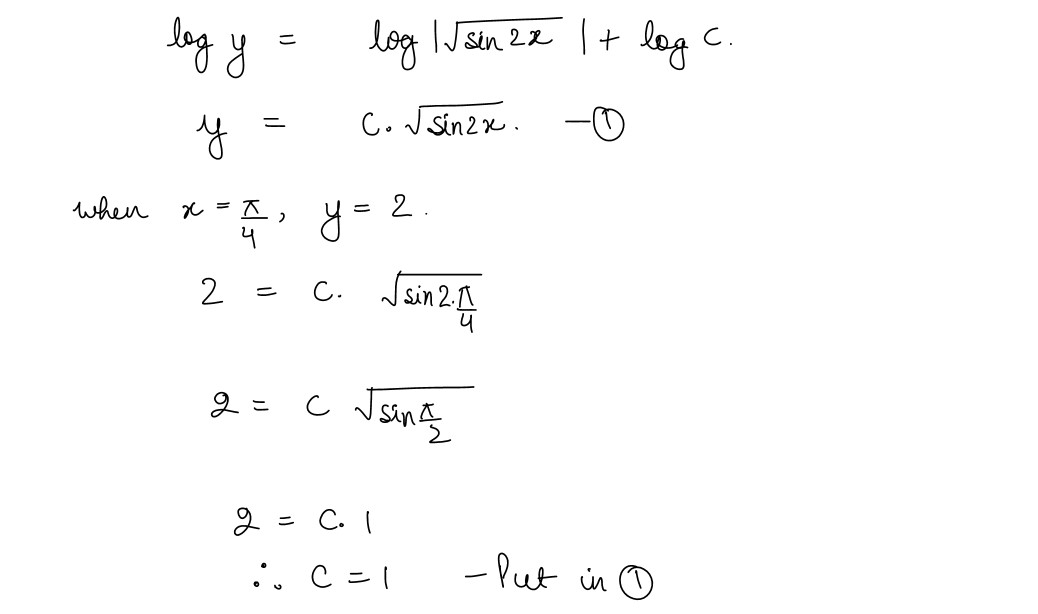 log y = log |√sin 2x | + log C.
y = C. √sin2x. — ①
when x = π/4, y = 2.
2 = C. √sin2.π/4
2 = C √sin π/2
2 = C. 1
∴ C = 1 — Put in ①